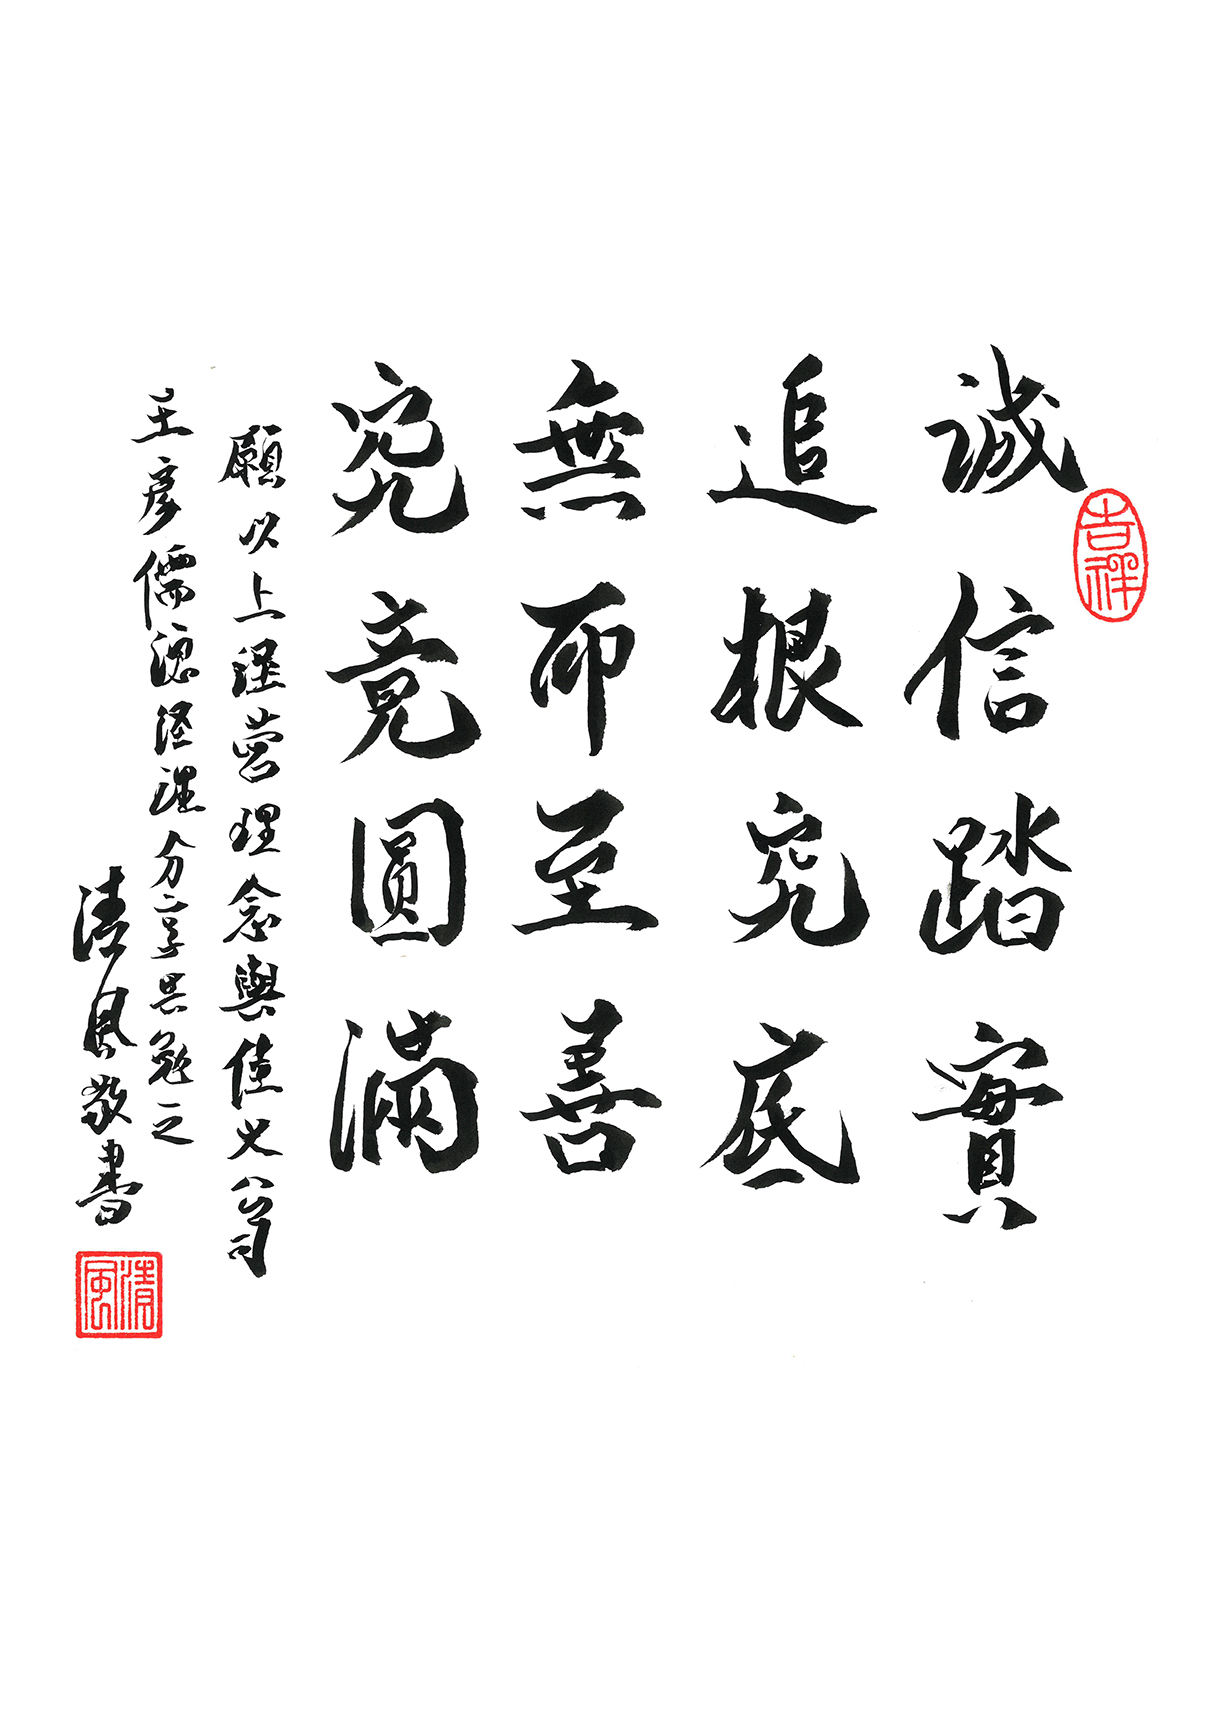 誠信踏實
吉祥
追根究底
無而至善
究竟圓滿
願以上經營理念與佳必公司
王彥儒總經理分享共勉之
清風敬書
清風